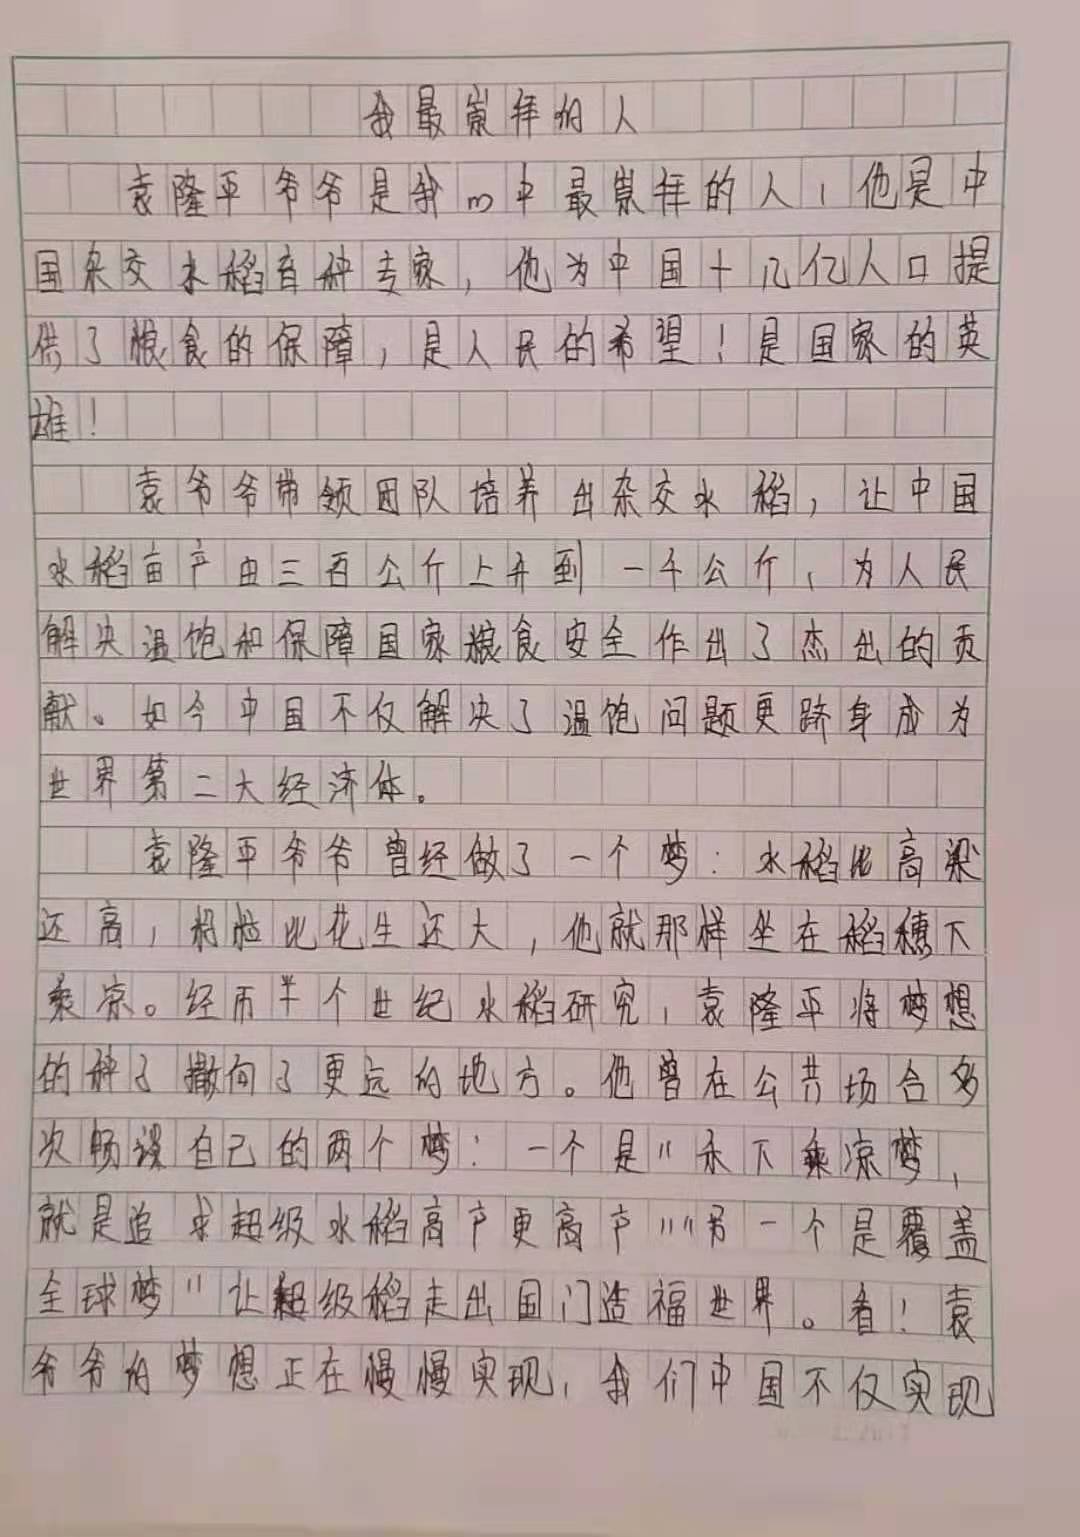 我最崇拜的人
袁隆平爷爷是我心中最崇拜的人，他是中
国杂交水稻育种专家，他为中国十几亿人口提
供了粮食的保障，是人民的希望！是国家的英
雄！
袁爷爷带领团队培养出杂交水稻，让中国
水稻亩产由三百公斤上升到一千公斤，为人民
解决温饱和保障国家粮食安全作出了杰出的贡
献。如今中国不仅解决了温饱问题更跻身成为
世界第二大经济体。
袁隆平爷爷曾经做了一个梦：水稻比高梁
还高，籽粒比花生还大，他就那样坐在稻穗下
乘凉。经历半个世纪水稻研究，袁隆平将梦想
的种子撒向了更远的地方。他曾在公共场合多
次畅谈自己的两个梦：一个是"禾下乘凉梦，
就是追求超级水稻高产更高产""另一个是覆盖
全球梦"让超级稻走出国门造福世界。看！袁
爷爷的梦想正在慢慢实现，我们中国不仅实现